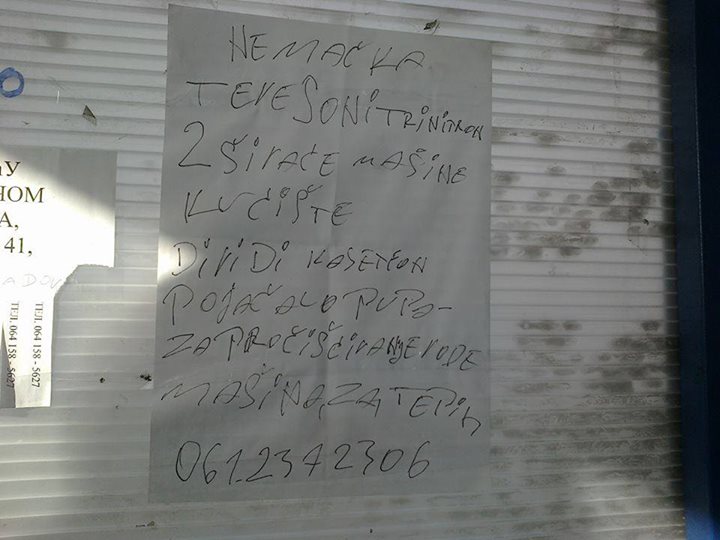 НОМ
А,
41,
ТЕЛ. 064 158 - 5627
ТЕЛ. 064 158 - 5627
NEMAČKA
TEVESONi TRiNiTRON
2 ŠiVAĆE MAŠiNE
KUČiŠTE
DiViDi KASETFON
POJAČALO PUPA-
ZA PROČiŠĆiVANJE VODE
MAŠiNA, ZA, TEPih
0612372306